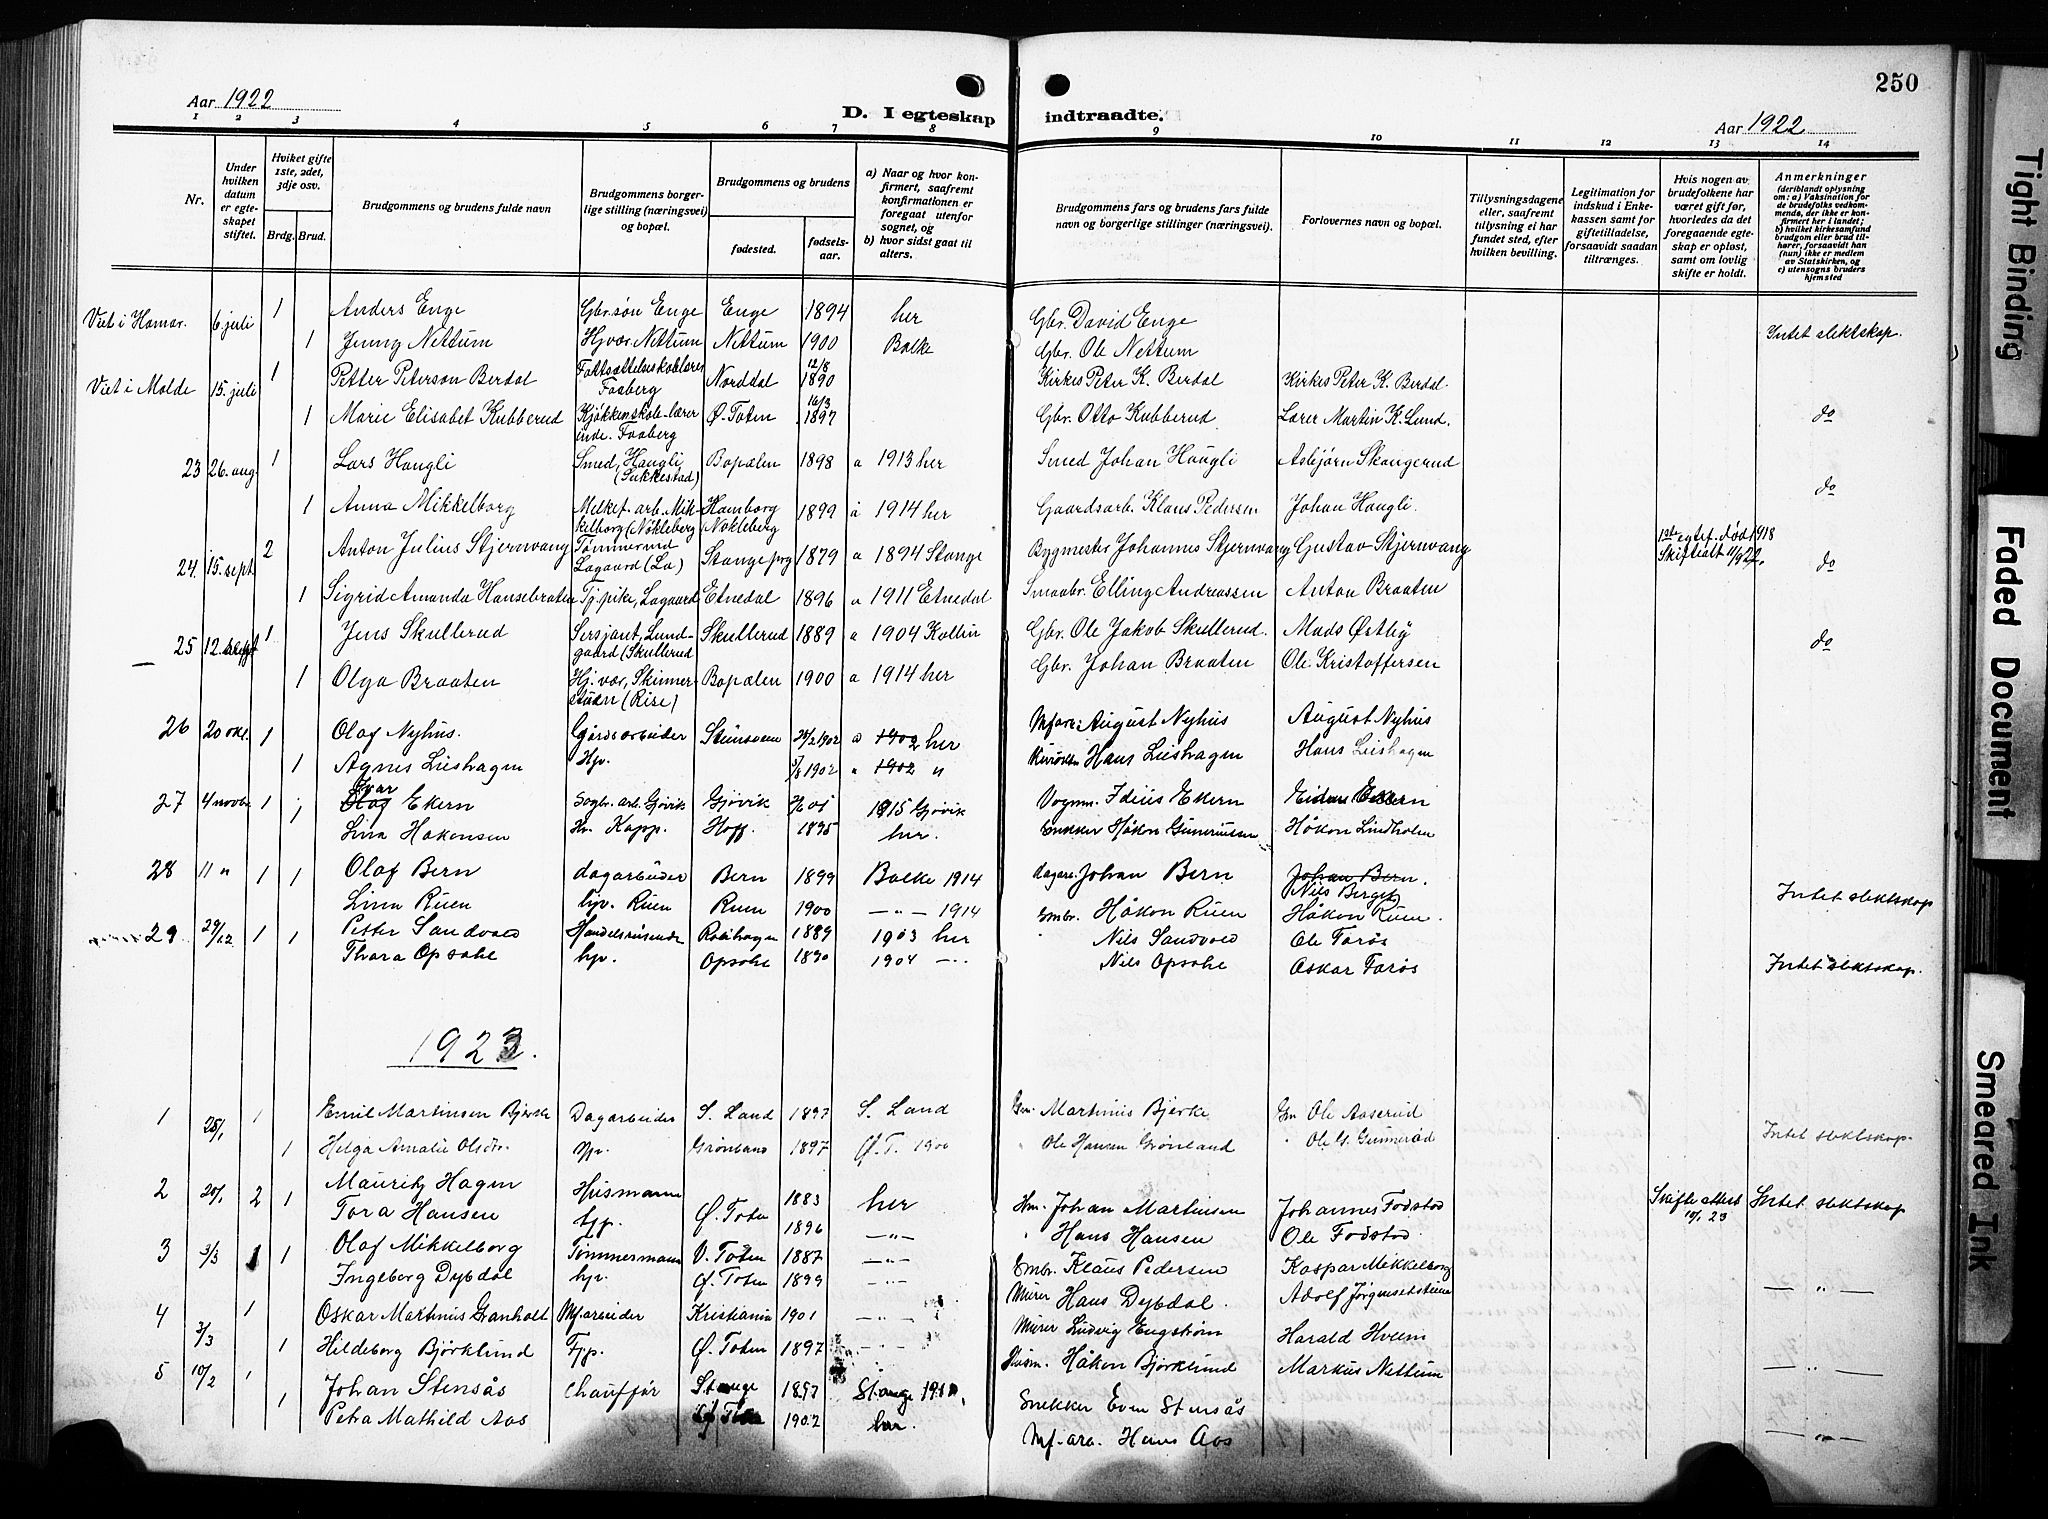 250
Aar 1922
D. I egteskap indtraadte.
Aar 1922
1 2 3 4 5 6 7 8 9 10 11 12 13 14
Nr.
Under hvilken datum er egteskapet stiftet.
Hvilket gifte 1ste, 2det, 3dje osv.
Brdg. Brud.
Brudgommens og brudens fulde navn
Brudgommens borgerlige stilling (næringsvei) og bopæl.
Brudgommens og brudens
fødested.
fødselsaar.
a) Naar og hvor konfirmert, saafremt konfirmationen er foregaat utenfor sognet, og
b) hvor sidst gaat til alters.
Brudgommens fars og brudens fars fulde navn og borgerlige stillinger (næringsvei).
Forlovernes navn og bopæl.
Tillysningsdagene eller, saafremt tillysning ei har fundet sted, efter hvilken bevilling.
Legitimation for indskud i Enkekassen samt for giftetilladelse, forsaavidt saadan tiltrænges.
Hvis nogen av brudefolkene har været gift før, hvorledes da det foregaaende egteskap er opløst, samt om lovlig skifte er holdt.
Anmerkninger
(deriblandt oplysning om: a) Vaksination for de brudefolks vedkommende, der ikke er konfirmert her i landet; b) hvilket kirkesamfund brudgom eller brud tilhører, forsaavidt han (hun) ikke er medlem av Statskirken, og c) utensogns bruders hjemsted
Viet i Hamar. 6. juli 1 Anders Enge Gbr.søn Enge Enge 1894 her Gbr. David Enge
1 Jenny Nettum Hj.vær. Nettum Nettum 1900 Balke Gbr. Ole Nettum Intet slektskap.
Viet i Molde 15. juli 1 Petter Peterson Berdal Faaberg Norddal 12/8 1890 Kirkes. Peter K. Berdal Kirkes Peter K. Berdal.
1 Marie Elisabet Kubberud Kjøkkenskole-lærerinde. Faaberg Ø. Toten 16/3 1897 Gbr. Otto Kubberud Lærer Martin K. Lund. do
23 26. aug. 1 Lars Haugli Smed, Haugli (Sukkestad) Bopælen 1898 a 1913 her Smed Johan Haugli Asbjørn Skangerud
1 Anna Mikkelborg Melkef. arb. Mikkelborg (Nøkleberg Hamborg Nøkleberg 1899 a 1914 her Gaardsarb. Klaus Pedersen Johan Haugli. do
24. 15. sept. 2 Anton Julius Stjernvang Tømmermd Lagaard (La) Stange prg 1879 a 1894 Stange Bygmester Johannes Stjernvang Gustav Stjernvang 1ste egtef. død 1918 Skifteatt 11/9 22. do
1 Sigrid Amanda Hansebraaten Tj.pike, Lagaard Etnedal 1896 a 1911 Etnedal Smaabr. Elling Andreassen Anton Braaten
25 12. sept 1 Jens Skullerud Sersjant, Lundgaard (Skullerud Skullerud 1889 a 1904 Kolbu Gbr. Ole Jakob Skullerud. Mads Østby do
1 Olga Braaten Hj.vær, Skinnerstuen (Rise) Bopælen 1900 a 1914 her Gbr. Johan Braaten Ole Kristoffersen
26 20 okt. 1 Olaf Nyhus. Gårdsarbeider Steinsveen 1902 a 1902 her M.farc. August Nyhus August Nyhus
1 Agnes Lieshagen Hjv. 1902 " 1902 " Hans Lieshagen Hans Lieshagen
27 4 novbr 1 1 Olaf Ivar Ekern Gjøvik Gjøvik 1915 Gjøvik Vognm. Edius Ekern Ekern
Lina Hakensen Hv. Kapp. Hoff. 1895 her. Snekker Håkon Gunerussen Håkon Lindholm
28 11 " 1 1 Olaf Bern dagarbeider Bern 1899 Balke 1914 dagarb. Johan Bern Johan Bern. Nils Berget
Lina Ruen hjv. Ruen Ruen 1900 — " — 1914 Smbr. Håkon Ruen Håkon Ruen. Intet slektskap
29 29/12 1 1 Petter Sandvold Handelsreisende 1889 1903 her Nils Sandvold Ole Farøs
Thora Opsahl hjv. Opsahl 1890 1904 — " Nils Opsahl Oskar Farøs Intet slektskap.
1923.
1 25/1 1 Emil Martinsen Bjerke Dagarbeider S. Land 1897 S. Land Gm. Martinus Bjerke Gm Ole Aaserud
1 Helga Amalie Olsdtr. Hjv. Grønland 1897 Ø. T. 1900 " Ole Hansen Grønland " Ole G. Gunnerød Intet slektskap.
2 20/1 2 1 Mauritz Hagen Husmann Ø. Toten 1883 her Hm. Johan Martinsen Johannes Fodstad Skifte attest 10/1 23 Intet slektskap
Tora Hansen hjp. 1896 — " — " Hans Hansen Ole Fodstad.
3 3/3 1 1 Olaf Mikkelborg Tømmermann V. Toten 1887 — " — Smbr. Klaus Pedersen Kaspar Mikkelborg
Ingeborg Dybdal hjv. Ø. Toten 1899 — " — Murer Hans Dybdal. Adolf Jørgensetstuen — " —
4 3/3 1 Oskar Martinus Granholt M.f.arbeider Kristiania 1901 — " — Murer Ludvig Engstrøm Harald Hveem
1 Hildeborg Bjørklund Fjp. Ø. Toten 1897 — " — Husm. Håkon Bjørklund Markus Nettum — " —
5 10/2 1 Johan Stensås Chauffør Stange 1897 Stange Snekker Even Stensås
1 Petra Mathild Aas Ø. Toten 1902 her. Mf. arb. Hans Aas — " —
Tight Binding
Faded Document
Smeared Ink